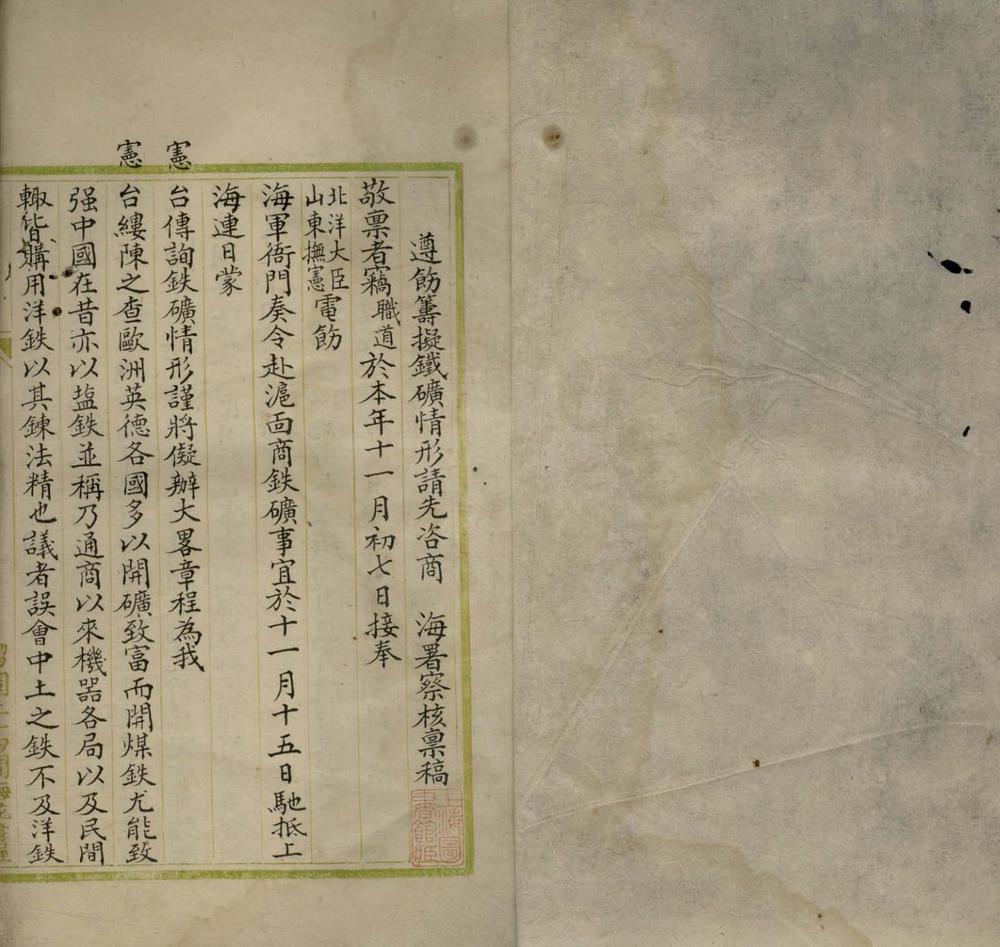 遵飭籌擬鐵礦情形請先咨商　海署察核禀稿
敬禀者竊職道於本年十一月初七日接奉
北洋大臣
山東撫憲電飭
海軍衙門奏令赴滬面商鉄礦事宜於十一月十五日馳抵上
海連日蒙
憲台傳詢鉄礦情形謹將儗辦大畧章程為我
憲台縷陳之查歐洲英德各國多以開礦致富而開煤鉄尤能致
强中國在昔亦以盐鉄並稱乃通商以來機噐各局以及民間
輙皆購用洋鉄以其鍊法精也議者誤會中土之鉄不及洋鉄
上海圖書館藏